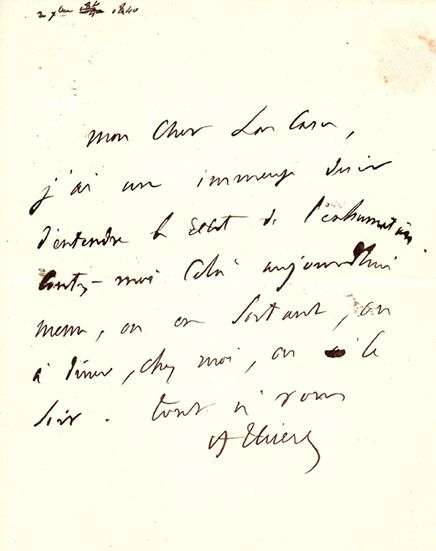 2 xbre 1840
mon cher Las Cases,
j'ai un immense désir
d'entendre le récit de l'exhumation
Contez-moi cela aujourd'hui
meme, ou en sortant, ou
à diner, chez moi, ou le
soir. tout à vous
A Thiers